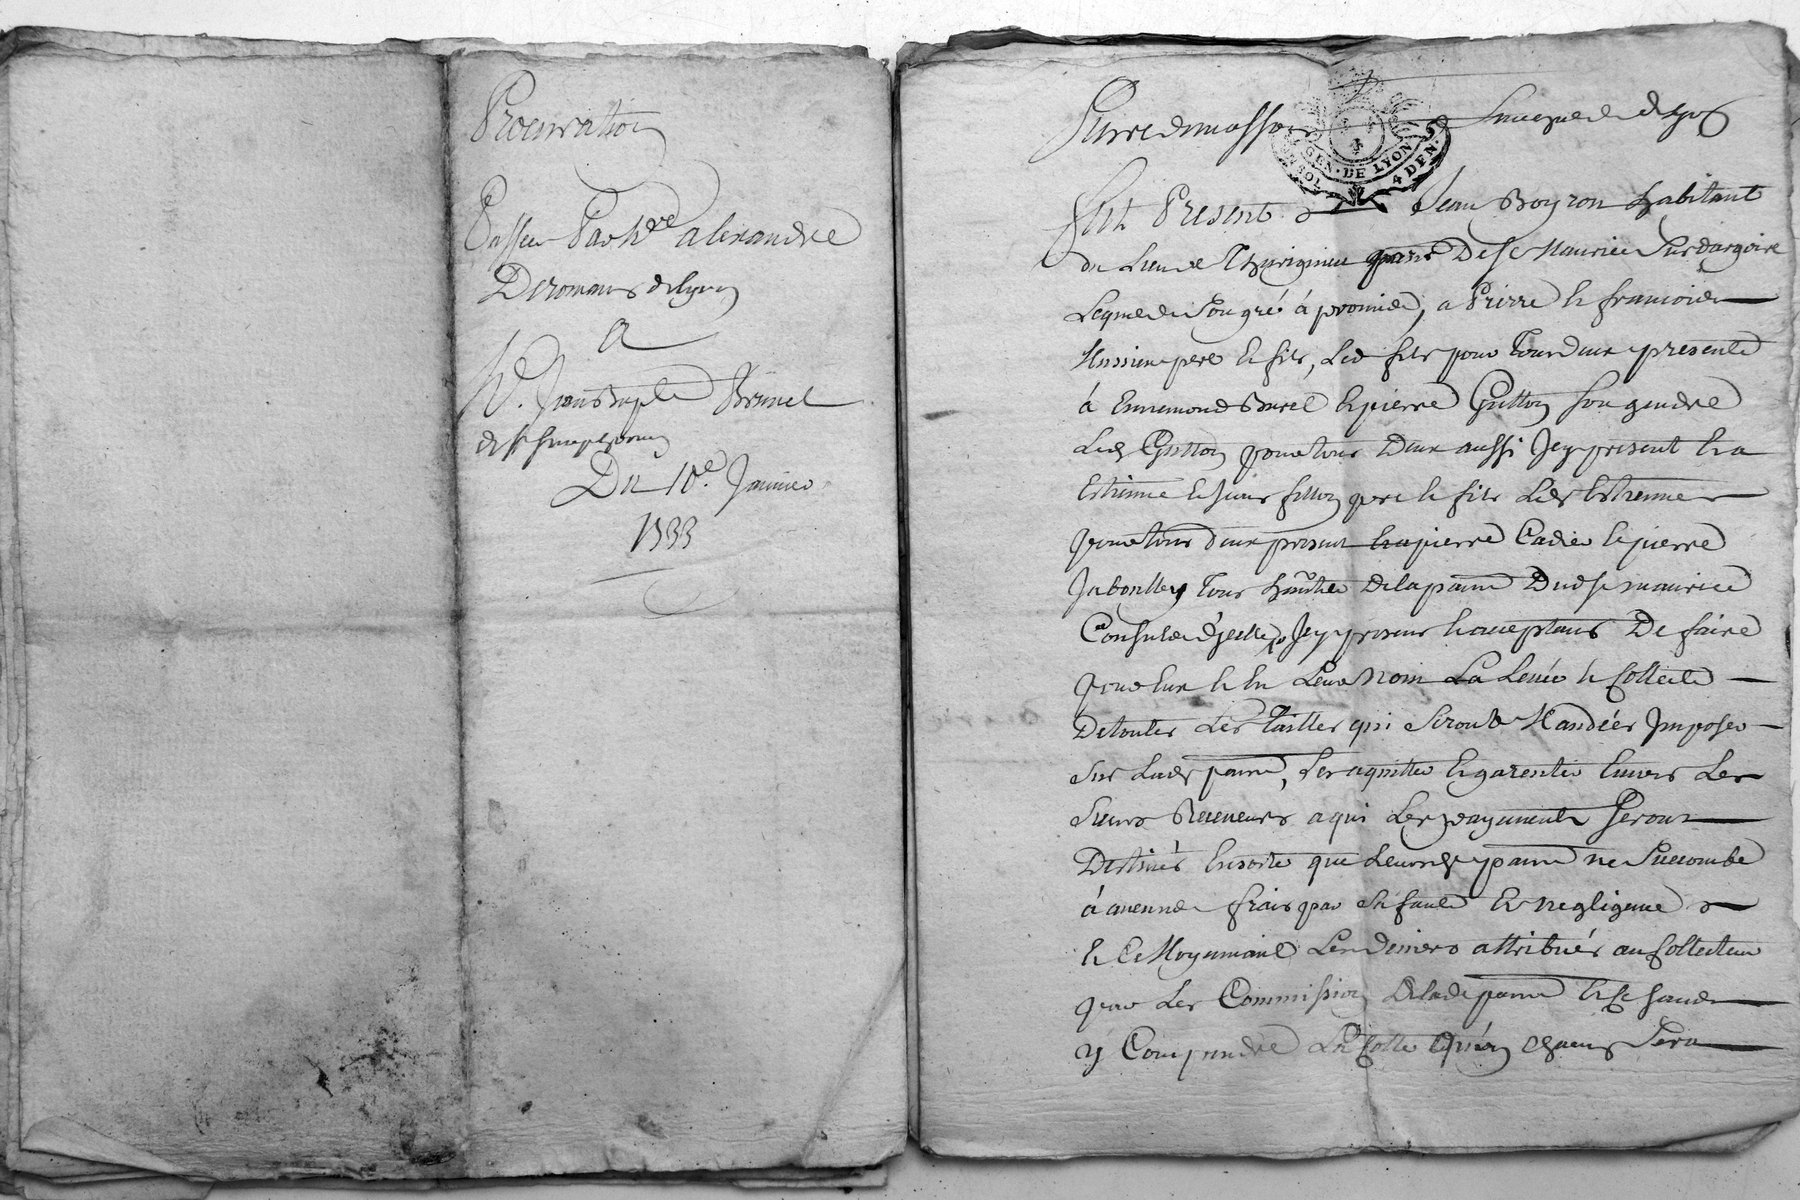 Procuration
Passée Par Sr. alexandre
Deromans de lyon
a
Sr. Jean Baptte Brunel
de st simphorien
Du 10e. Janvier
1733
GEN. DE LYON
4 DEN.
fut Present Jean Boyron habitant
du Lieu de parr De St Maurice Sur dargoire
Lequel de Son gré à promis, a Pierre & francois
pere & fils, Led fils pour Tous deux present
à Ennemond Burel & pierre Guitton Son gendre
Led Guitton pour tous Deux aussi Icy present & a
Estienne & Jean fillion pere & fils Led Estienne
pour tous deux present & a pierre Cadier & pierre
Tous De la parr Dud St maurice
Consuls d'Icelle Icy presens & acceptans De faire
pour Eux & En Leur Nom La Levée & Collecte
De toutes Les Tailles qui Seront Mandées Imposer
Sur Lade parr, Les aquitter & garentir Envers Les
Sieurs Receveurs a qui Les payements Seront
Destinés Ensorte que parr ne Succombe
à aucune frais par Sa faute & negligence
& Ce Moyennant Les Deniers attribués au Collecteur
par Les Commission De lade parr & Sans
y Comprendre La Cotte Sera